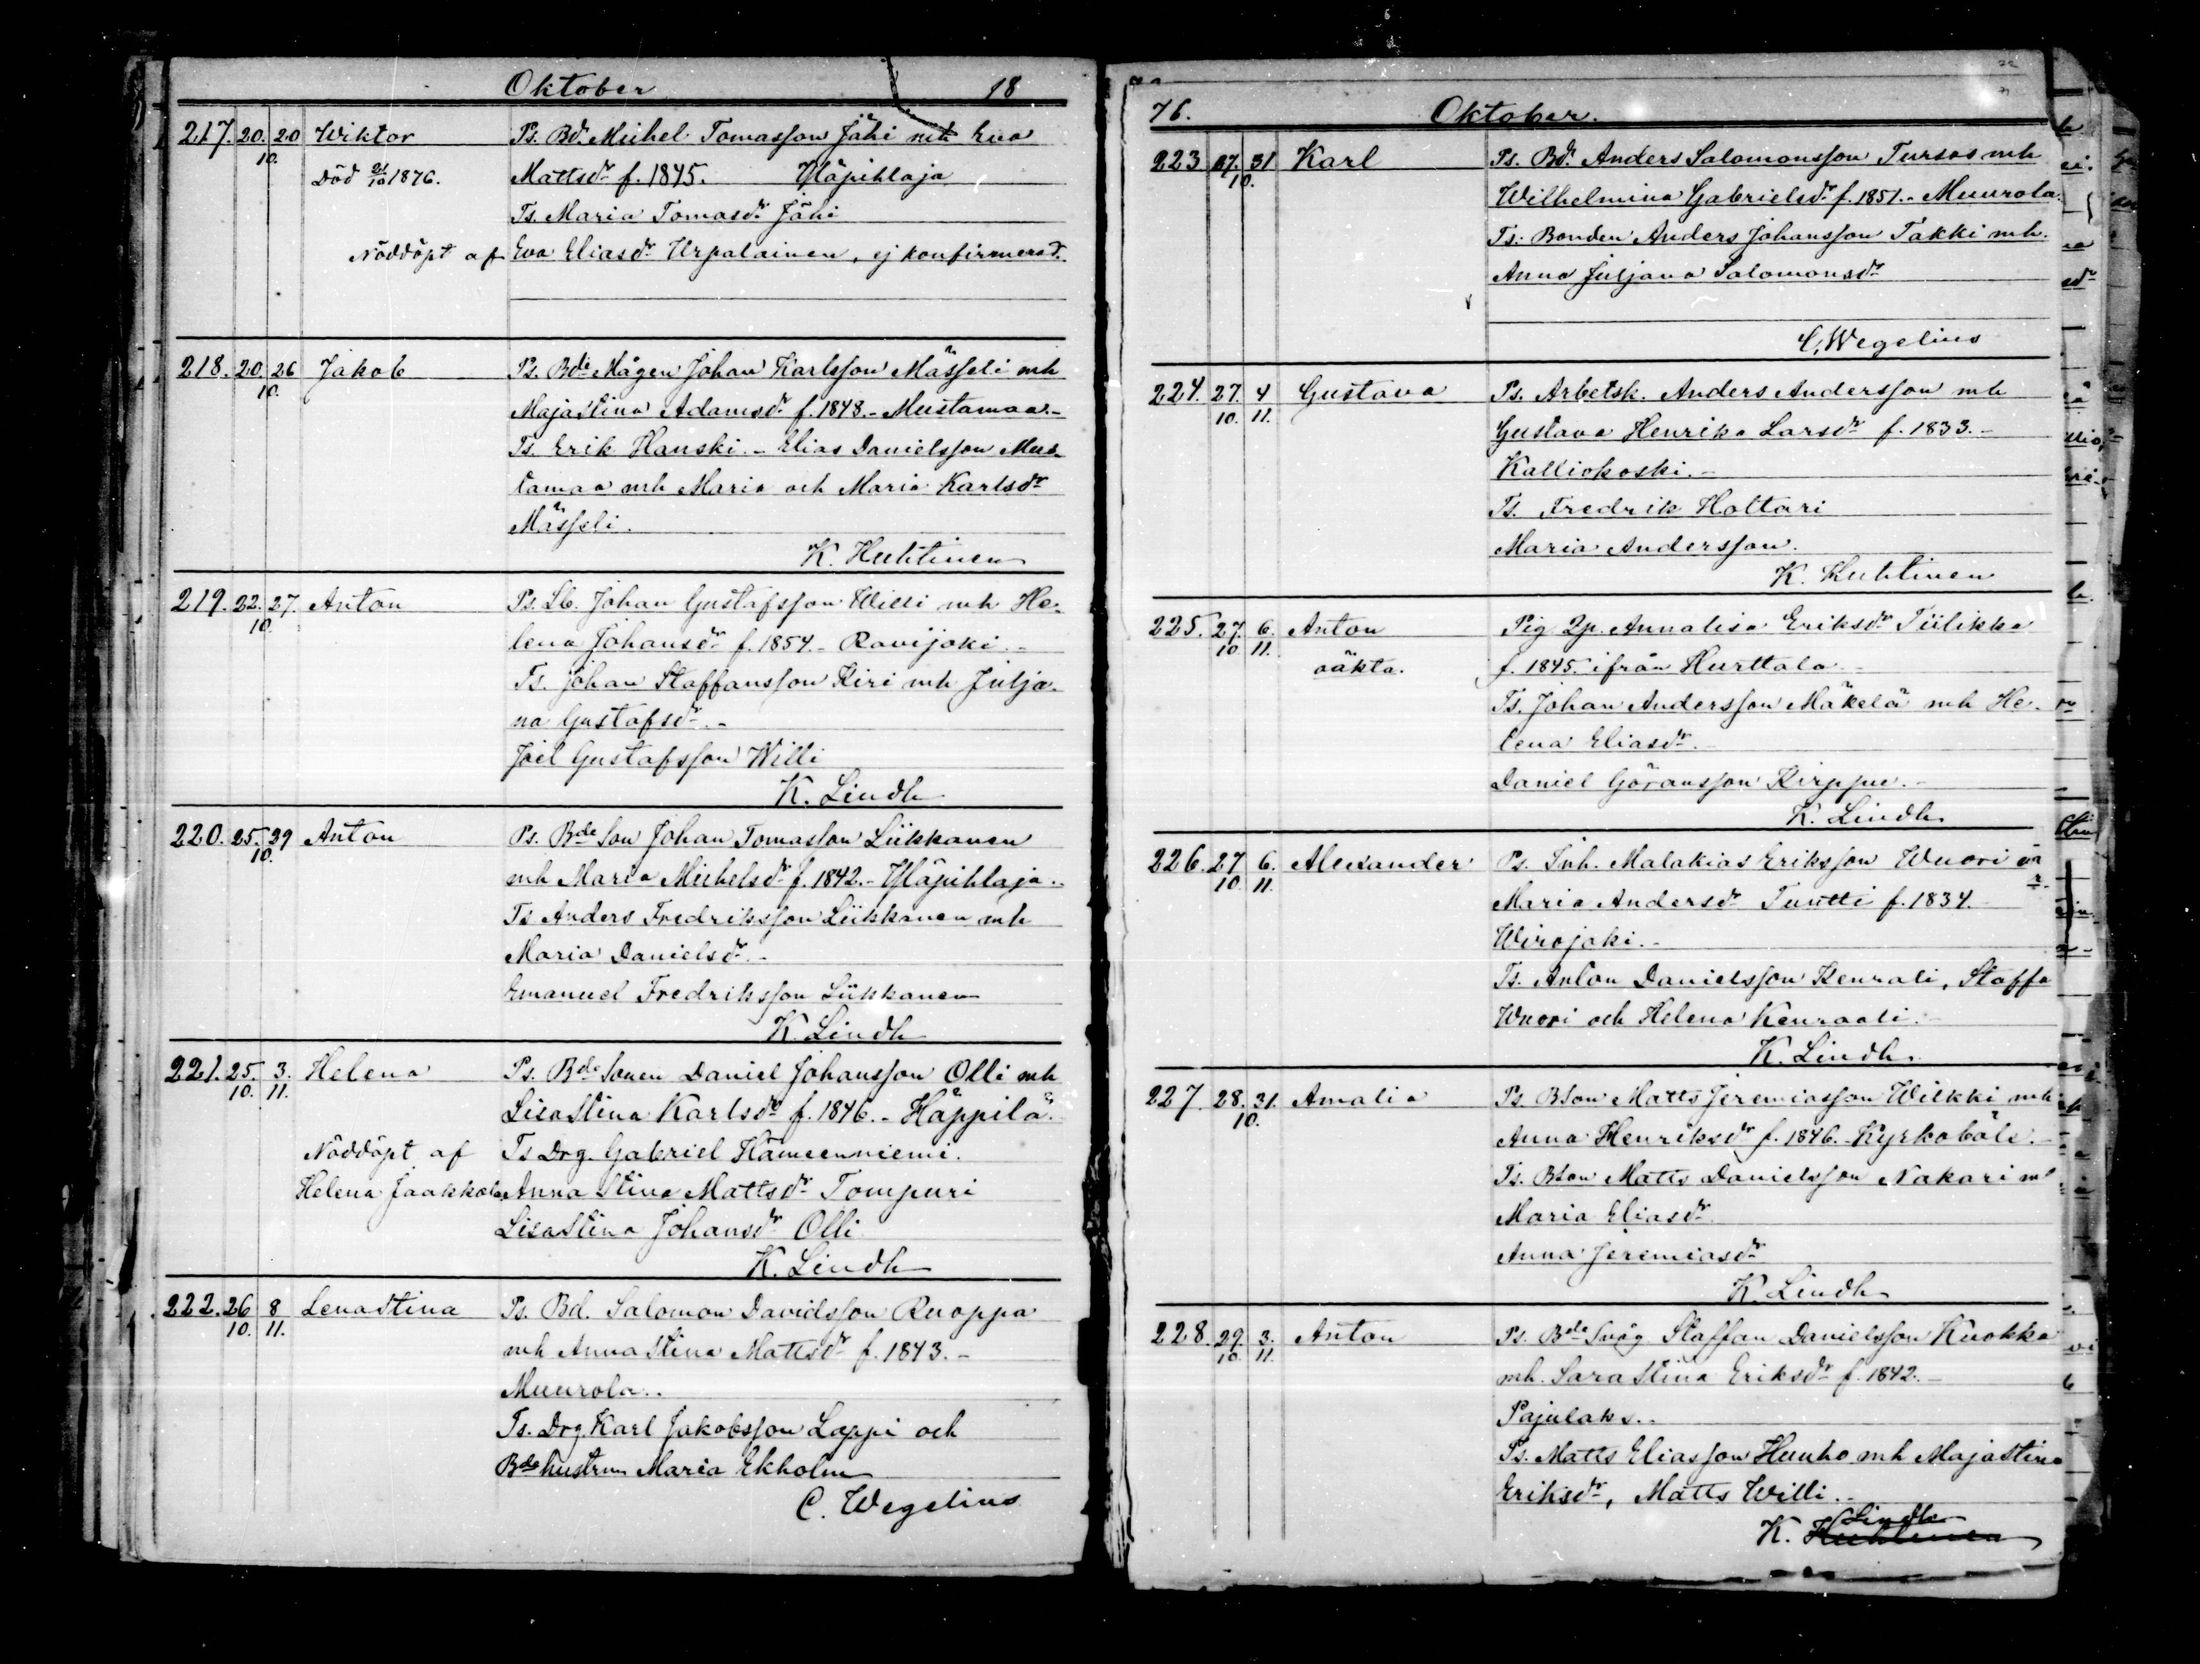 Oktober 18
217. 20. 20 Wiktor Ps. Bd. Michel Tomasson Jähi mh Eva
10.
Död 21/10 1876. Mattsdr f. 1845. Yläpihlaja
Ts. Maria Tomasdr Jähi
Nöddöpt af Eva Eliasdr Urpalainen, ej konfirmerad.
218. 20. 26 Jakob Ps. Bde Mågen Johan Karlsson Mässeli mh
10.
Majastina Adamsdr f. 1848. - Mustamaa. -
Ts. Erik Hanski. - Elias Danielsson Mus-
tamaa mh Maria och Maria Karlsdr
Mässeli.
K. Huhtinen
219. 22. 27. Anton Ps. Lb. Johan Gustafsson Willi mh He-
10.
lena Johansdr f. 1854 - Ravijoki. -
Ts. Johan Staffansson Kiri mh Julja-
na Gustafsdr. -
Joel Gustafsson Willi
K. Lindh
220. 25. 29 Anton Ps. Bde Son Johan Tomasson Liikkanen
10.
mh Maria Michelsdr f. 1842. - Yläpihlaja. -
Ts Anders Fredriksson Liikkanen mh
Maria Danielsdr. -
Emanuel Fredriksson Liikkanen
K. Lindh
221. 25. 3. Helena Ps. Bde Sonen Daniel Johansson Olli mh
10. 11.
Lisastina Karlsdr f. 1846. - Häppilä.
Nöddöpt af Ts Drg. Gabriel Hämeenniemi.
Helena Jaakkola Anna Stina Mattsdr Tompuri
Lisastina Johansdr Olli
K. Lindh
222. 26 8 Lenastina Ps. Bd. Salomon Davidsson Ruoppa
10. 11.
mh Anna Stina Mattsdr f. 1843. -
Muurola. -
Ts. Drg. Karl Jakobsson Lappi och
Bde hustrun Maria Ekholm
C. Wegelius
76. Oktober.
223 27. 31 Karl Ps. Bd. Anders Salomonsson Tursas mh
10.
Wilhelmina Gabrielsdr f. 1851. - Muurola.
Ts. Bonden Anders Johansson Takki mh.
Anna Juljana Salomonsdr
C. Wegelius
224. 27. 4 Gustava Ps. Arbetsk. Anders Andersson mh
10. 11.
Gustava Henrika Larsdr f. 1833. -
Kalliokoski. -
Ts. Fredrik Holtari
Maria Andersson.
K. Huhtinen
225. 27. 6. Anton Pig Qp. Annalisa Eriksdr Tiilikka
10 11.
oäkta. f. 1845. ifrån Hurttala. -
Ts. Johan Andersson Mäkelä mh He-
lena Eliasdr. -
Daniel Göransson Kirppu. -
K. Lindh
226. 27 6. Alexander Ps. Inh. Malakias Eriksson Wuori
10. 11.
Maria Andersdr Tuutti f. 1834.
Wirojoki. -
Ts. Anton Danielsson Kenrali, Staffa
Wuori och Helena Kenraali. -
K. Lindh.
227. 28. 31. Amalia Ps. Bson Matts Jeremiasson Wilkki mh
10.
Anna Henriksdr f. 1846. - Kyrkoböle. -
Ts. Bson Matts Danielsson Nakari m
Maria Eliasdr
Anna Jeremiasdr
K. Lindh
228. 29. 3. Anton Ps. Bde Svåg Staffan Danielsson Kuokka
10. 11.
mh. Sara Stina Eriksdr f. 1842. -
Pajulaks. -
Ts. Matts Eliasson Huuho mh Majastina
Eriksdr, Matts Willi. -
Lindh
K. Huhtinen